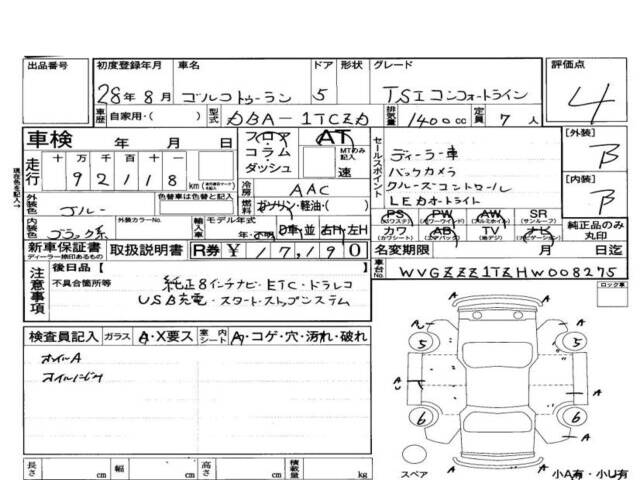 出品番号 初度登録年月 車名 ドア 形状 グレード 評価点
28年8月 ゴルフトゥーラン 5 TSI コンフォートライン 4
車歴 自家用・( ) 型式 DBA-1TCZD 排気量 1400cc 定員 7人
車検 年 月 日 フロア AT セールスポイント ディーラー車 [外装] B
走行 十 万 千 百 十 コラム MTのみ記入 バックカメラ
92118 km ダッシュ 速 クルーズコントロール [内装] B
現在色を記入→ 外装色 ブルー 色替車は色替と記入 冷房 AAC LEDオートライト
燃料 ガソリン・軽油・( )
PS PW AW SR
(パワステ) (パワーウインド) (アルミホイール) (サンルーフ) 純正品のみ丸印
内装色 ブラック系 外装カラーNo. 輸入車 モデル年式 年・不明 D車・並 右H・左H
カワ AB TV ナビ
(カワシート) (エアバッグ) (地デジ) (ナビゲーション)
新車保証書 取扱説明書 R券 ¥17,190 名変期限 月 日迄
ディーラー捺印のあるもの
車台No WVGZZZ1TZHW008275
注意事項 後日品〔 〕 ロック車
不具合箇所等 純正8インチナビ・ETC・ドラレコ
USB充電・スタートストップシステム
検査員記入 ガラス A・X要ス 室内シート A・コゲ・穴・汚れ・破れ
オイルA
オイルにじみ
A A A
5 5
A A
6 6
A A
スペア
小A有・小U有
長さ cm 幅 cm 高さ cm 積載量 kg